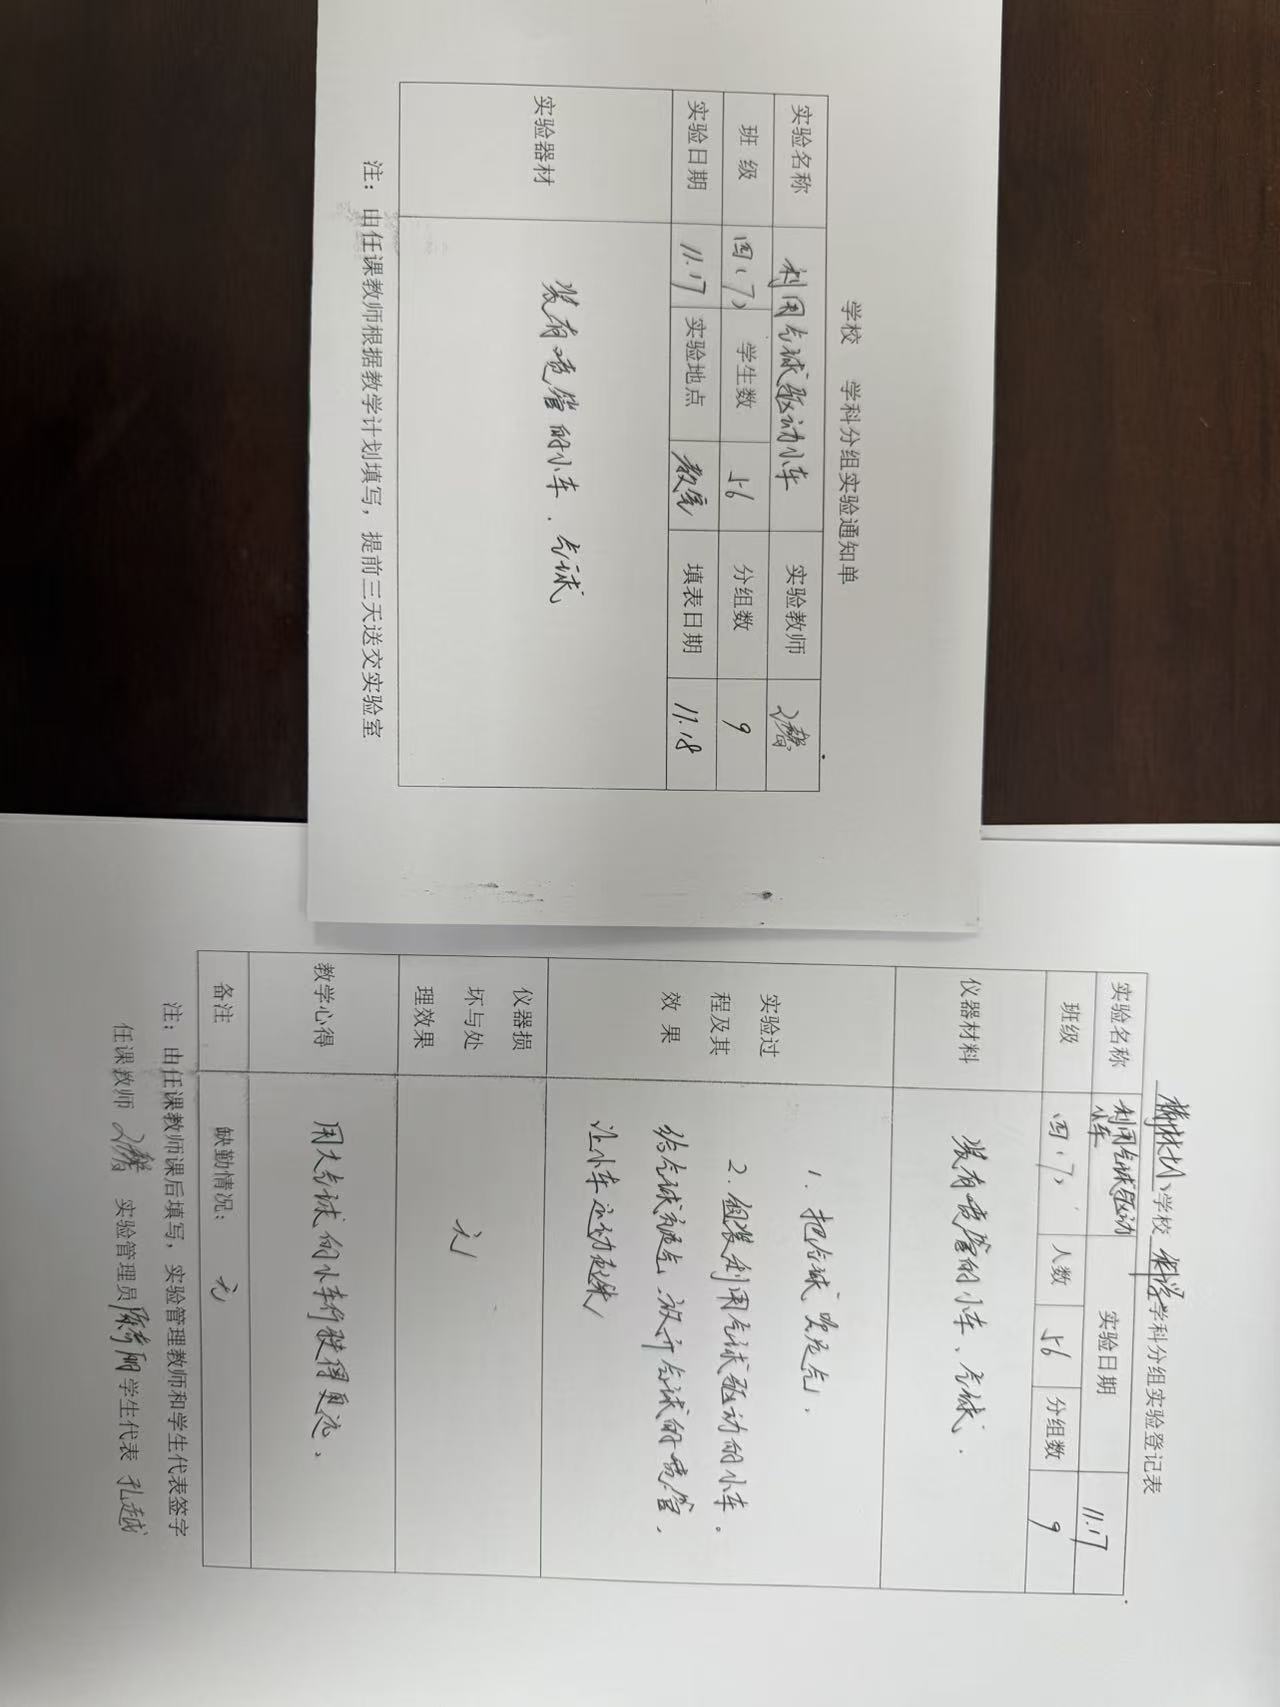 学校 学科分组实验通知单
实验名称 利用气球驱动小车 实验教师
班 级 四(7) 学生数 56 分组数 9
实验日期 11.17 实验地点 教室 填表日期 11.18
实验器材 装有喷管的小车、气球
注：由任课教师根据教学计划填写，提前三天送交实验室
学校 科学 学科分组实验登记表
实验名称 利用气球驱动小车 实验日期 11.17
班级 四(7) 人数 56 分组数 9
仪器材料 装有喷管的小车、气球.
实验过程及其效果
1. 把气球
2. 组装利用气球驱动的小车。
给气球充足气,放开气球的喷管,
让小车运动起来
仪器损坏与处理效果 无
教学心得 用大气球的小车行驶得更远.
备注 缺勤情况： 无
注：由任课教师课后填写，实验管理教师和学生代表签字
任课教师 实验管理员 学生代表